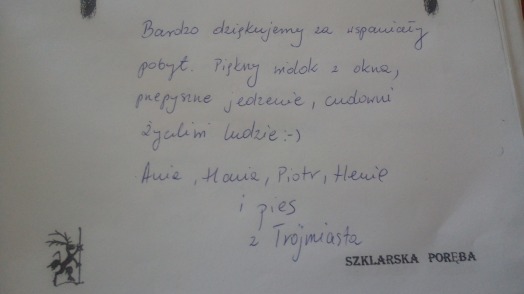 Bardzo dziękujemy za wspaniały
pobyt. Piękny widok z okna,
przepyszne jedzenie, cudowni
życzliwi ludzie :-)
Ania, Hania, Piotr, Henie
i pies
z Trójmiasta
SZKLARSKA PORĘBA